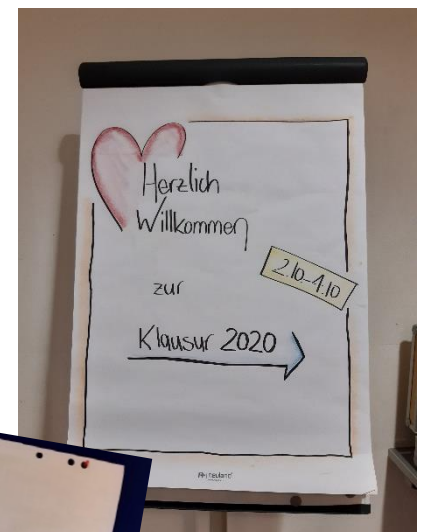 Herzlich
Willkommen
2.10-4.10
zur
Klausur 2020
neuland